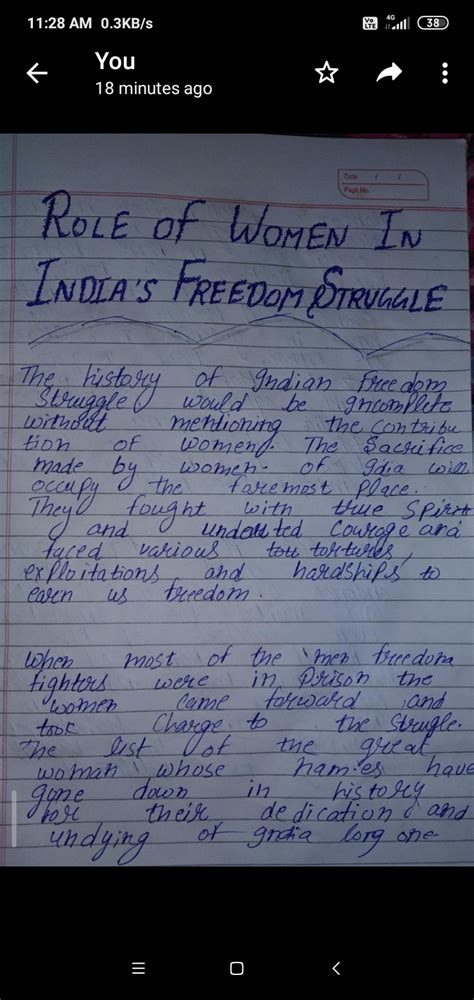 11:28 AM 0.3KB/s
Vo LTE 4G 38
You
18 minutes ago
Date / /
Page No.
ROLE OF WOMEN IN
INDIA'S FREEDOM STRUGGLE
The history of Indian Freedom
Struggle would be Incomplete
without mentioning the contribu
tion of women. The Sacrifice
made by women of Idia will
occupy the foremost Place.
They fought with true Spirit
and undeuted Courage and
faced various tou tortures,
exploitations and hardships to
earn us freedom.
When most of the men freedom
fighters were in Prison the
women came forward and
took Charge to the Strugle.
The list of the great
woman whose names have
gone down in history
for their dedication and
undying of India long one